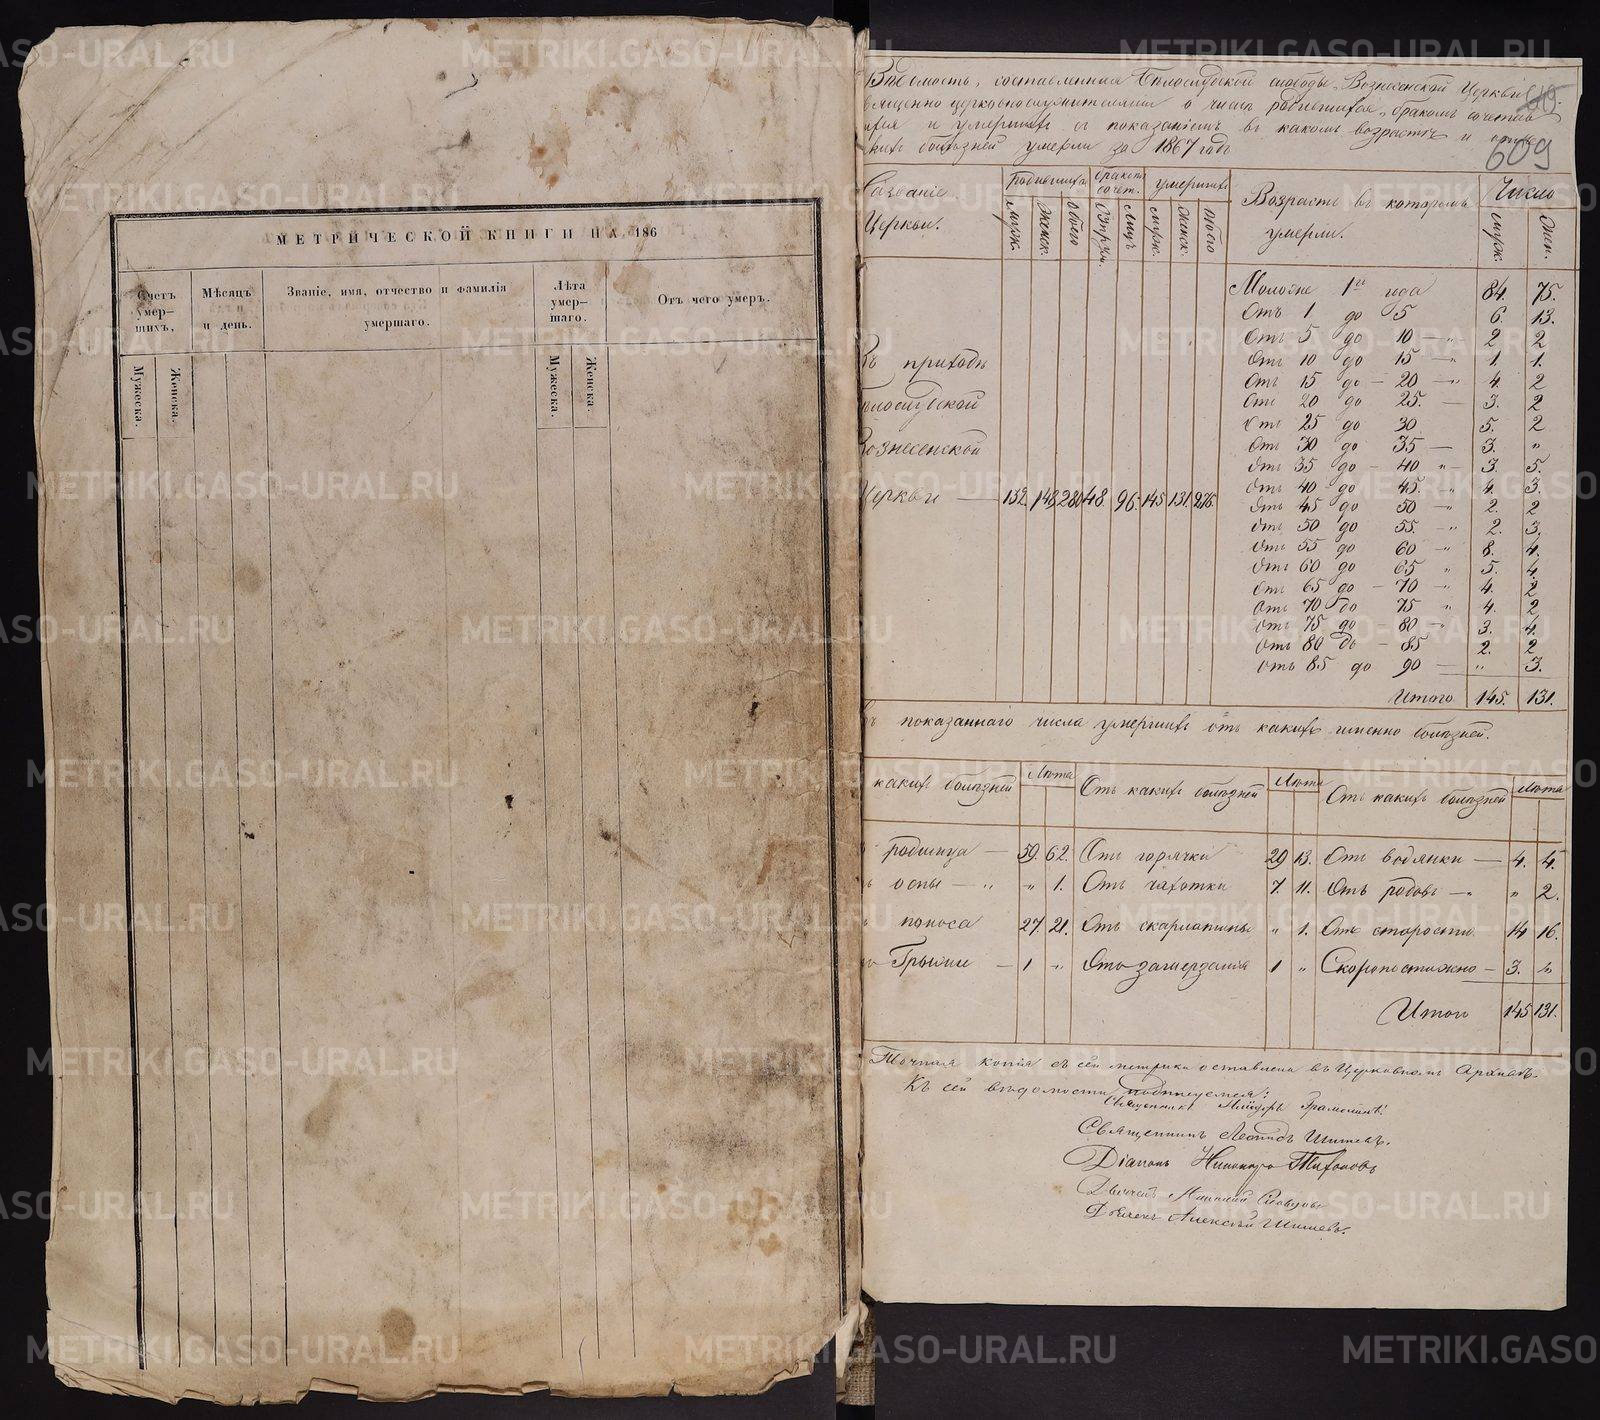 МЕТРИЧЕСКОЙ КНИГИ НА 186
Счетъ умер-шихъ.
Мѣсяцъ и день.
Званіе, имя, отчество и фамилія умершаго.
Лѣта умер-шаго.
Отъ чего умеръ.
Мужеска.
Женска.
Мужеска.
Женска.
609
Вѣдомость, составленная Бѣлослудской слободы, Вознесенской Церкви
священно церковнослужителями о числѣ родившихся, бракомъ сочетав
ихся и умершихъ съ показаніемъ въ какомъ возрастѣ и отъ
болѣзней умерли за 1867 годъ
Названіе Церкви.
родившихся
бракомъ сочет.
умершихъ
Возрастъ въ которомъ умерли.
Число
муж.
женск.
обоего
муж.
женск.
обоего
муж.
жен.
Въ приходѣ
Бѣлослудской
Вознесенской
Церкви — 132. 148 280 48. 96. 145 131. 276.
Моложе 1го года 84. 75.
Отъ 1 до 5 6. 13.
Отъ 5 до 10 — „ 2. 2
Отъ 10 до 15 — „ 1. 1.
Отъ 15 до — 20 — „ 4. 2
Отъ 20 до 25. — 3. 2
Отъ 25 до 30 5. 2
Отъ 30 до 35 — 3. „
Отъ 35 до — 40 „ — 3. 5.
Отъ 40 до 45. „ 4. 3.
Отъ 45 до 50 — „ 2. 2
Отъ 50 до 55. — „ 2. 3.
Отъ 55 до 60 — „ 8. 4.
Отъ 60 до 65 „ 5. 4
Отъ 65 до — 70 — „ 4. 2
Отъ 70 до 75 „ 4. 2
Отъ 75 до — 80 — „ 3. 4.
Отъ 80 до — 85 2. 2
Отъ 85 до 90 — „ 3.
Итого 145. 131.
показаннаго числа умершихъ отъ какихъ именно болѣзней.
какихъ болѣзней
Лѣта
Отъ какихъ болѣзней
Лѣта
Отъ какихъ болѣзней
Лѣта
родимца — 59. 62. Отъ горячки 29 13. Отъ водянки — 4. 4.
оспы — „ „ 1. Отъ чахотки 7. 11. Отъ родовъ — „ „ 2.
поноса 27. 21. Отъ скарлатины „ 1. Отъ старости 14 16.
Грыжи — 1 „ Отъ замерзанія 1 „ Скоропостижно — 3. „
Итого 145 131.
Точная копія съ сей метрики оставлена въ Церковномъ Архивѣ.
Къ сей вѣдомости подписуемся:
Священникъ
Священникъ Леонидъ Шишевъ.
Діаконъ Никаноръ Тихоновъ
Дьячекъ
Дьячекъ Алексѣй Шишевъ.
METRIKI.GASO-URAL.RU